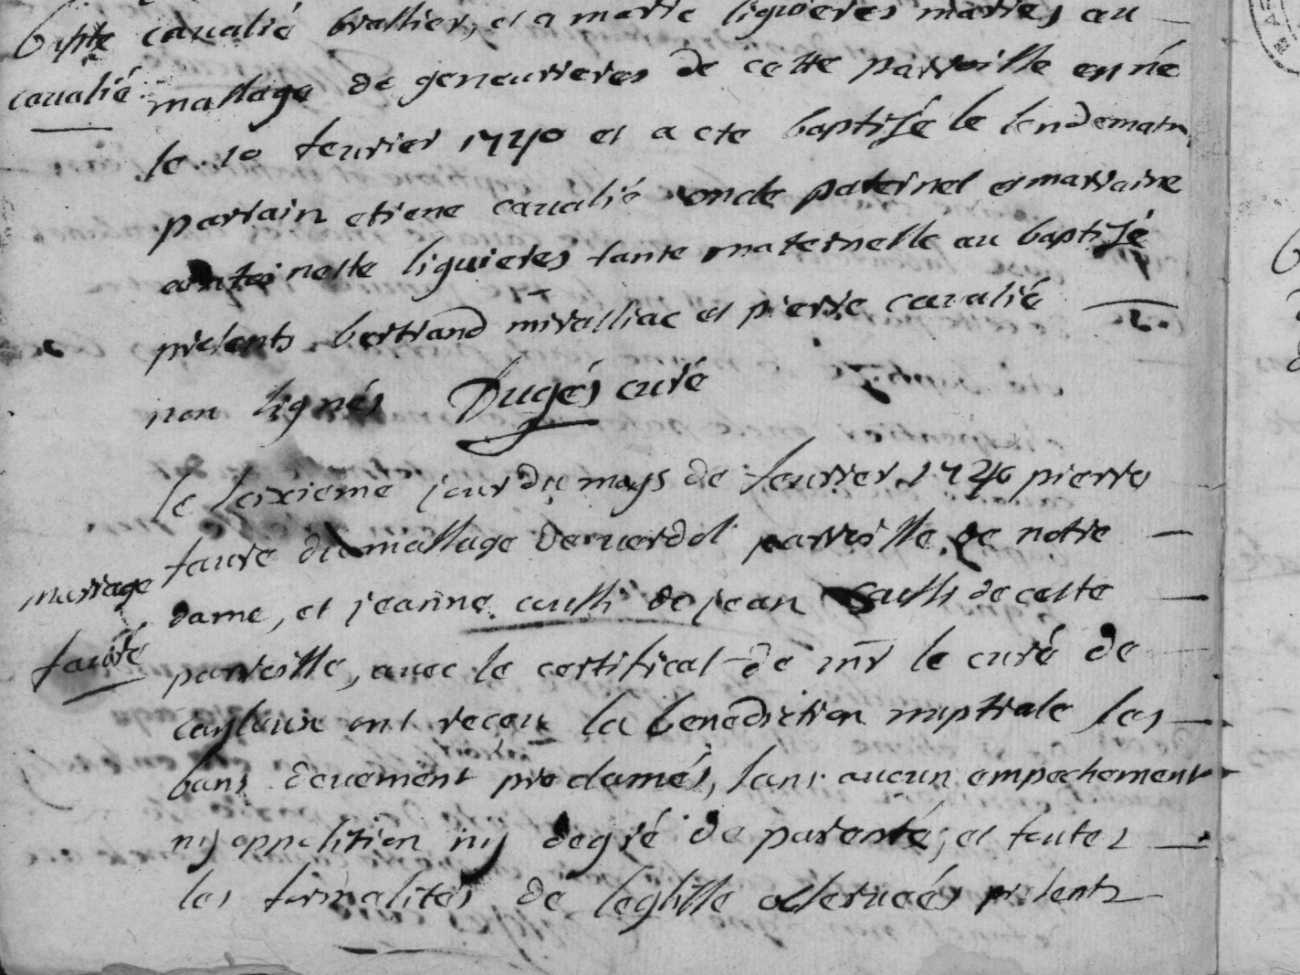 Bpte cavalié
cavalié brassier, et a marie liguieres maries, au
massage de geneurieres de cette parroisse est né
le 10 feurier 1740 et a ete baptisé le lendemain
parrain etiene cavalié oncle paternel et marraine
antoinette liguieres tante maternelle au baptisé
presents bertrand miralliac et pierre cavalié
non signés Dugés curé
marriage
faure
le seixieme jour du moys de feurier 1740 pierre
faure du massage deverdol parroisse de notre
dame, et jeanne couth de jean couth de cette
parroisse, avec le certificat de mr le curé de
cayloux ont receu la benediction nuptiale les
bans deuement proclamés, sans aucun empechement
ny opposition ny degré de parenté, et toutes
les formalites de leglisse observeés presents